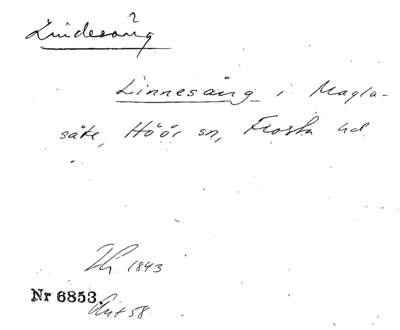 ?
Lindesäng
Linnesäng i Magla-
säte, Höör sn, Frosta hd
1843
Nr 6853.
Ant 58.